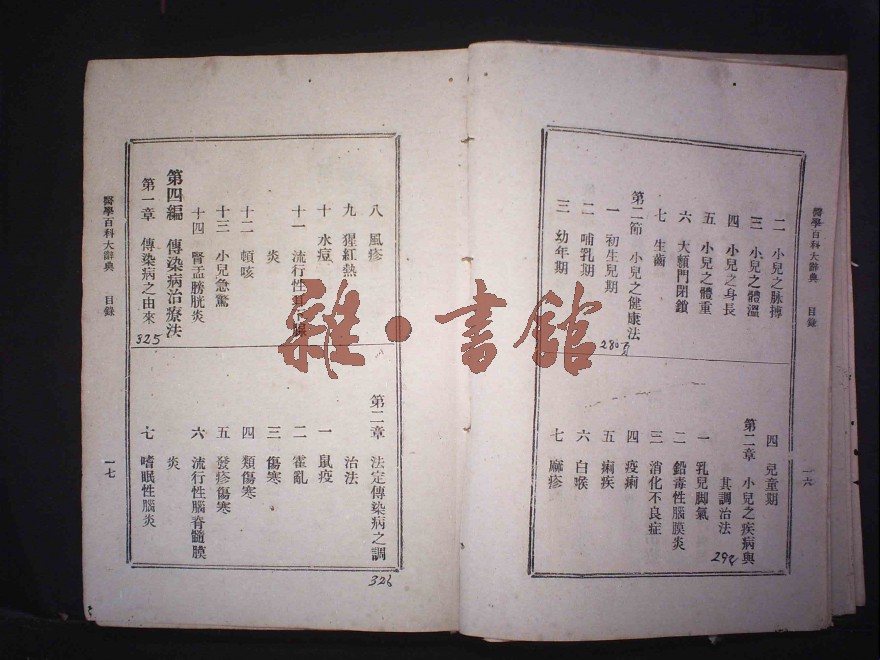 醫學百科大辭典　目錄
二　小兒之脉搏
三　小兒之體溫
四　小兒之身長
五　小兒之體重
六　大顖門閉鎖
七　生齒
第二節　小兒之健康法
280頁
一　初生兒期
二　哺乳期
三　幼年期
四　兒童期
第二章　小兒之疾病與
其調治法
292
一　乳兒脚氣
二　鉛毒性腦膜炎
三　消化不良症
四　疫痢
五　痢疾
六　白喉
七　麻疹
一六
八　風疹
九　猩紅熱
十　水痘
十一　流行性耳下腺
炎
十二　頓咳
十三　小兒急驚
十四　腎盂膀胱炎
第四編　傳染病治療法
第一章　傳染病之由來
325
第二章　法定傳染病之調
治法
326
一　鼠疫
二　霍亂
三　傷寒
四　類傷寒
五　發疹傷寒
六　流行性腦脊髓膜
炎
七　嗜眠性腦炎
醫學百科大辭典　目錄
一七
雜·書館